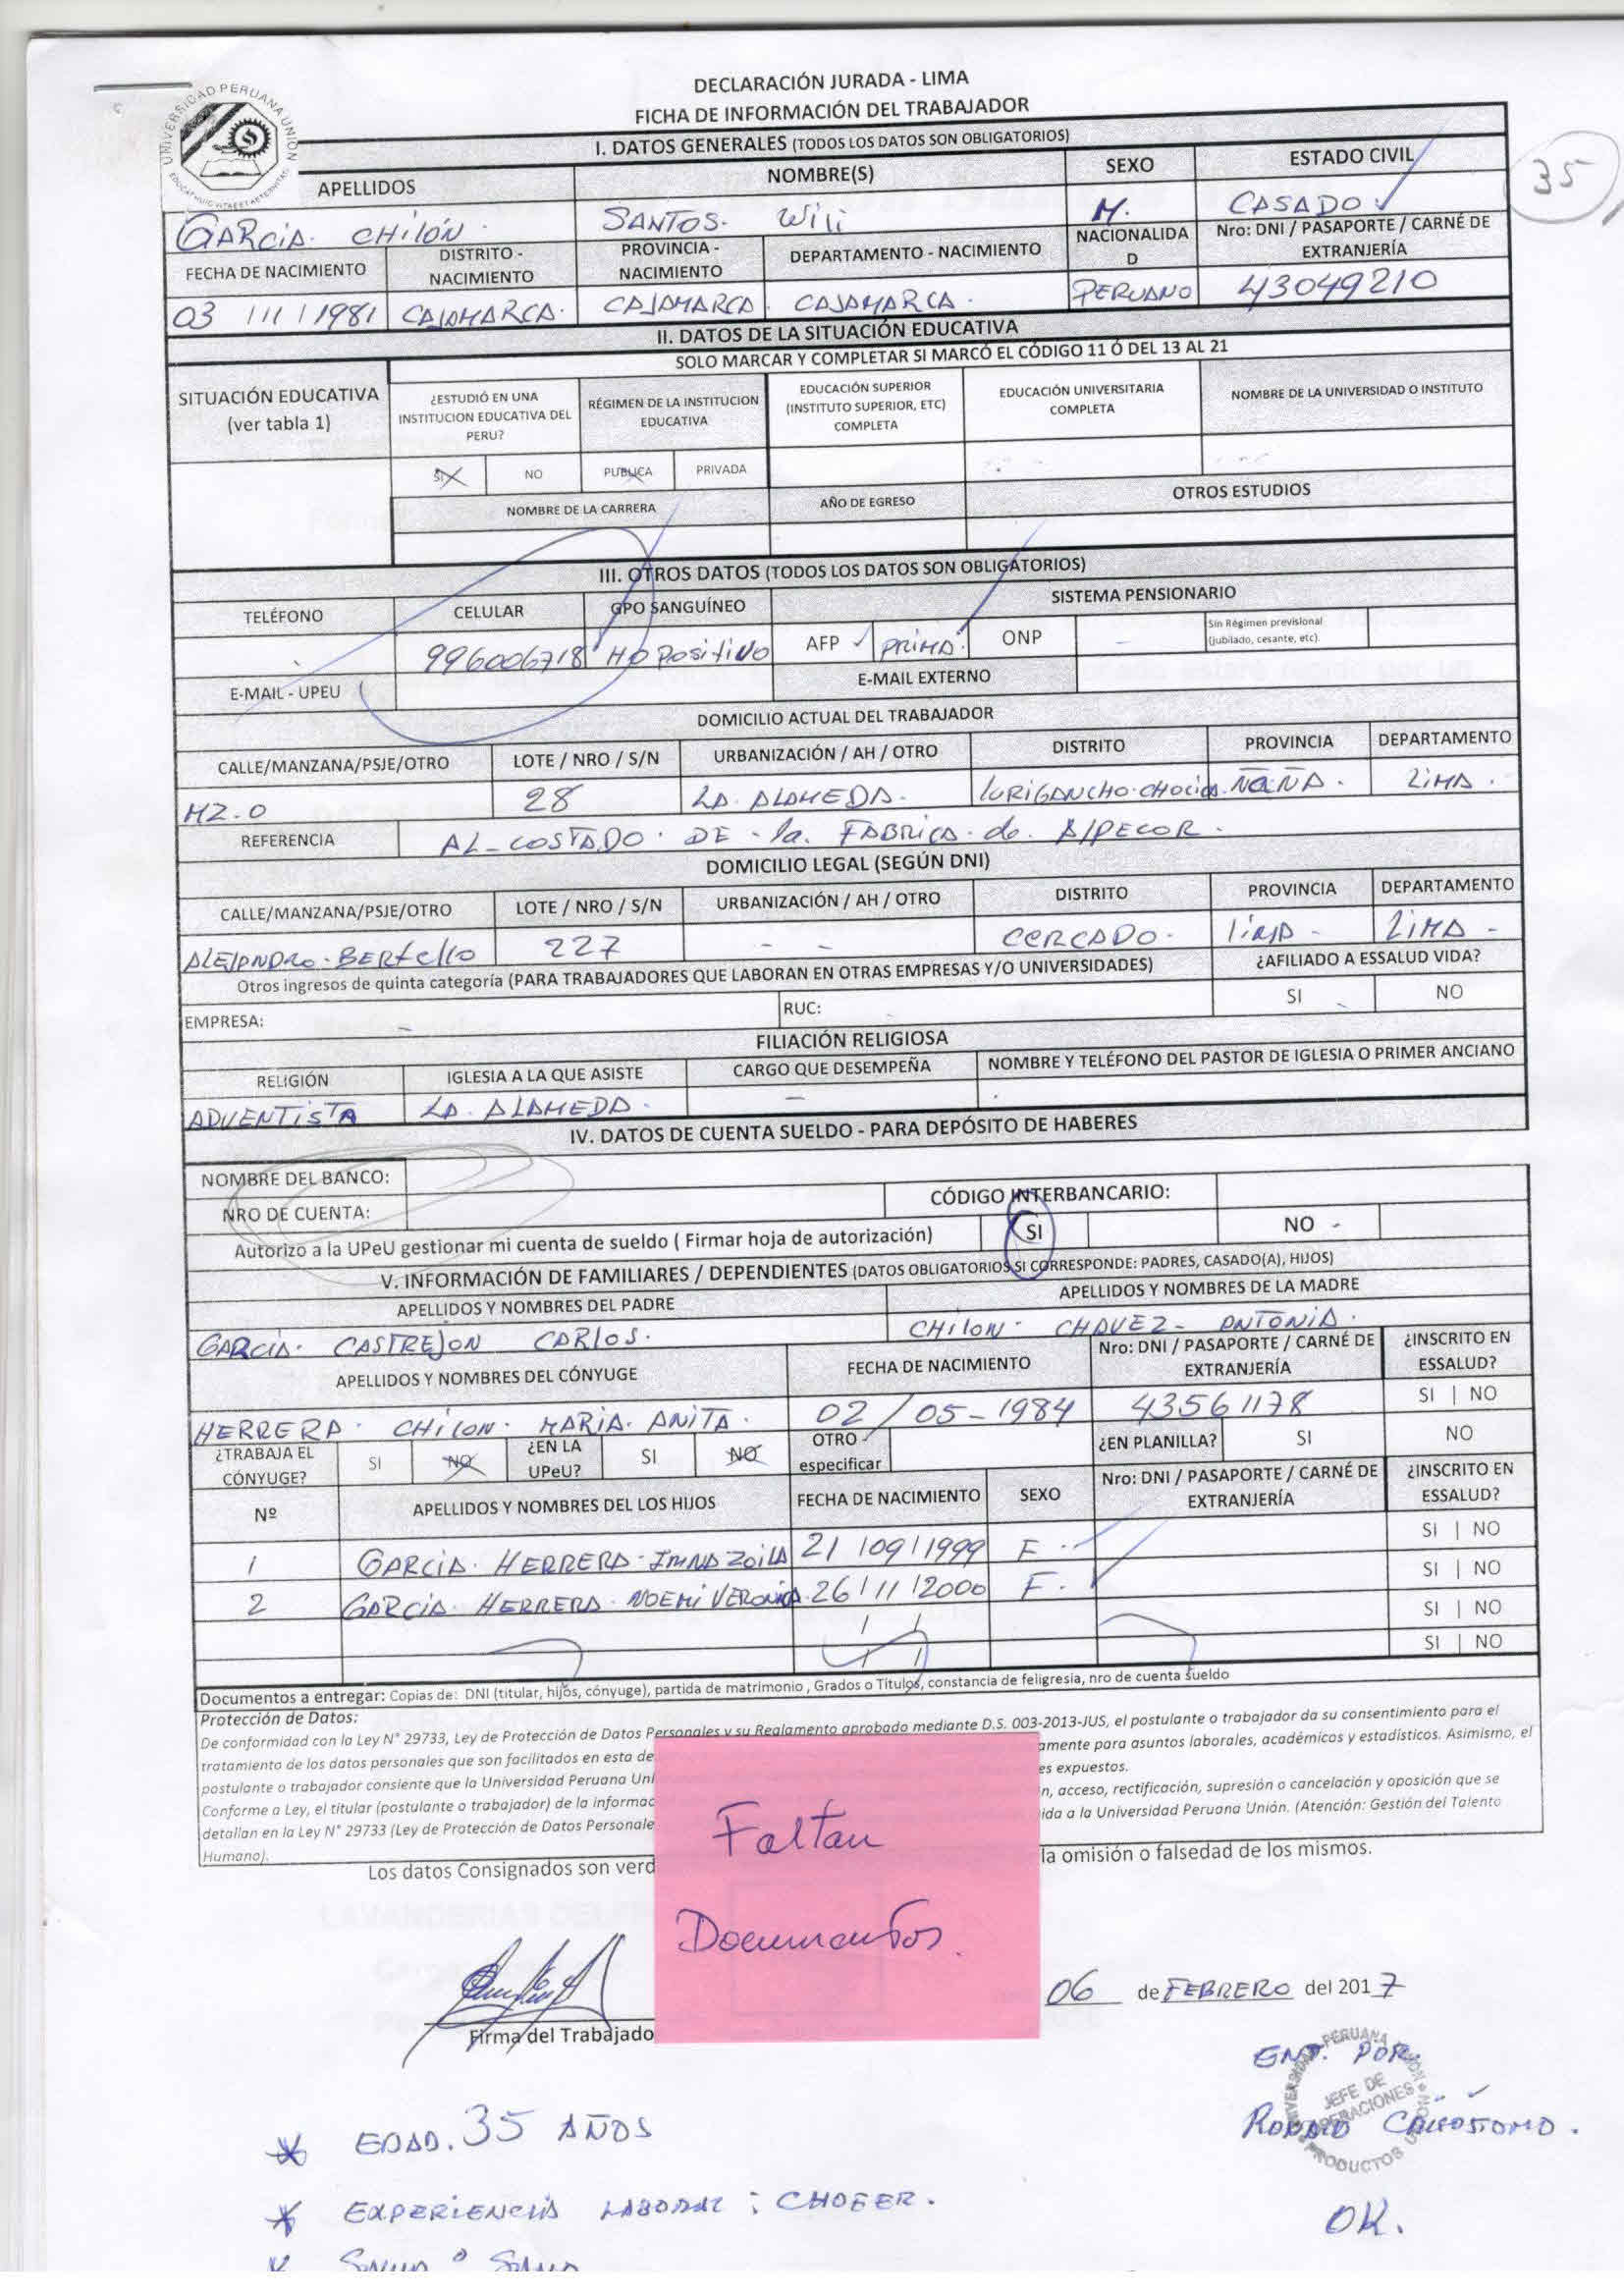 DECLARACIÓN JURADA - LIMA
FICHA DE INFORMACIÓN DEL TRABAJADOR
UNIVERSIDAD PERUANA UNION
I. DATOS GENERALES (TODOS LOS DATOS SON OBLIGATORIOS)
35
APELLIDOS NOMBRE(S) SEXO ESTADO CIVIL
GARCIA. CHILÓN. SANTOS. Wili M. CASADO
FECHA DE NACIMIENTO DISTRITO - NACIMIENTO PROVINCIA - NACIMIENTO DEPARTAMENTO - NACIMIENTO NACIONALIDA D Nro: DNI / PASAPORTE / CARNÉ DE EXTRANJERÍA
03 / 11 / 1981 CAJAMARCA. CAJAMARCA. CAJAMARCA. PERUANO 43049210
II. DATOS DE LA SITUACIÓN EDUCATIVA
SOLO MARCAR Y COMPLETAR SI MARCÓ EL CÓDIGO 11 Ó DEL 13 AL 21
SITUACIÓN EDUCATIVA (ver tabla 1) ¿ESTUDIÓ EN UNA INSTITUCION EDUCATIVA DEL PERU? RÉGIMEN DE LA INSTITUCION EDUCATIVA EDUCACIÓN SUPERIOR (INSTITUTO SUPERIOR, ETC) COMPLETA EDUCACIÓN UNIVERSITARIA COMPLETA NOMBRE DE LA UNIVERSIDAD O INSTITUTO
SI NO PUBLICA PRIVADA
NOMBRE DE LA CARRERA AÑO DE EGRESO OTROS ESTUDIOS
III. OTROS DATOS (TODOS LOS DATOS SON OBLIGATORIOS)
TELÉFONO CELULAR GPO SANGUÍNEO SISTEMA PENSIONARIO
996006718 HO Positivo AFP PRIMA. ONP - Sin Régimen previsional (jubilado, cesante, etc).
E-MAIL - UPEU E-MAIL EXTERNO
DOMICILIO ACTUAL DEL TRABAJADOR
CALLE/MANZANA/PSJE/OTRO LOTE / NRO / S/N URBANIZACIÓN / AH / OTRO DISTRITO PROVINCIA DEPARTAMENTO
MZ. O 28 LA. ALAMEDA. LURIGANCHO. ÑAÑA. LIMA.
REFERENCIA AL-COSTADO. DE - la. FABRICA. de.
DOMICILIO LEGAL (SEGÚN DNI)
CALLE/MANZANA/PSJE/OTRO LOTE / NRO / S/N URBANIZACIÓN / AH / OTRO DISTRITO PROVINCIA DEPARTAMENTO
ALEJANDRO. BERtello 227 - - CERCADO. LIMA - LIMA -
Otros ingresos de quinta categoría (PARA TRABAJADORES QUE LABORAN EN OTRAS EMPRESAS Y/O UNIVERSIDADES) ¿AFILIADO A ESSALUD VIDA?
EMPRESA: - RUC: SI NO
FILIACIÓN RELIGIOSA
RELIGIÓN IGLESIA A LA QUE ASISTE CARGO QUE DESEMPEÑA NOMBRE Y TELÉFONO DEL PASTOR DE IGLESIA O PRIMER ANCIANO
ADVENTISTA LA. ALAMEDA. -
IV. DATOS DE CUENTA SUELDO - PARA DEPÓSITO DE HABERES
NOMBRE DEL BANCO:
NRO DE CUENTA: CÓDIGO INTERBANCARIO:
Autorizo a la UPeU gestionar mi cuenta de sueldo ( Firmar hoja de autorización) SI NO -
V. INFORMACIÓN DE FAMILIARES / DEPENDIENTES (DATOS OBLIGATORIOS SI CORRESPONDE: PADRES, CASADO(A), HIJOS)
APELLIDOS Y NOMBRES DEL PADRE APELLIDOS Y NOMBRES DE LA MADRE
GARCIA. CASTREJON CARLOS. CHILON. CHAVEZ - ANTONIA.
APELLIDOS Y NOMBRES DEL CÓNYUGE FECHA DE NACIMIENTO Nro: DNI / PASAPORTE / CARNÉ DE EXTRANJERÍA ¿INSCRITO EN ESSALUD?
HERRERA. CHILON. MARIA. ANITA. 02 / 05 - 1984 43561178 SI | NO
¿TRABAJA EL CÓNYUGE? SI NO ¿EN LA UPeU? SI NO OTRO especificar ¿EN PLANILLA? SI NO
Nº APELLIDOS Y NOMBRES DEL LOS HIJOS FECHA DE NACIMIENTO SEXO Nro: DNI / PASAPORTE / CARNÉ DE EXTRANJERÍA ¿INSCRITO EN ESSALUD?
1 GARCIA. HERRERA. ZOILA 21 / 09 / 1999 F. SI | NO
2 GARCIA. HERRERA. NOEMI VERONICA. 26 / 11 / 2000 F. SI | NO
/ / SI | NO
/ / SI | NO
Documentos a entregar: Copias de: DNI (titular, hijos, cónyuge), partida de matrimonio , Grados o Titulos, constancia de feligresia, nro de cuenta sueldo
Protección de Datos:
De conformidad con la Ley N° 29733, Ley de Protección de Datos Personales y su Reglamento aprobado mediante D.S. 003-2013-JUS, el postulante o trabajador da su consentimiento para el
tratamiento de los datos personales que son facilitados en esta de amente para asuntos laborales, académicos y estadísticos. Asimismo, el
postulante o trabajador consiente que la Universidad Peruana Uni es expuestos.
Conforme a Ley, el titular (postulante o trabajador) de la informac n, acceso, rectificación, supresión o cancelación y oposición que se
detallan en la Ley N° 29733 (Ley de Protección de Datos Personale ida a la Universidad Peruana Unión. (Atención: Gestión del Talento
Humano).
Los datos Consignados son verd la omisión o falsedad de los mismos.
Faltan
Documentos.
06 de FEBRERO del 2017
Firma del Trabajado
ENT. POR.
UNIVERSIDAD PERUANA UNION
JEFE DE OPERACIONES
PRODUCTOS UNION
* EDAD. 35 AÑOS
* EXPERIENCIA LABORAL : CHOFER.
OK.